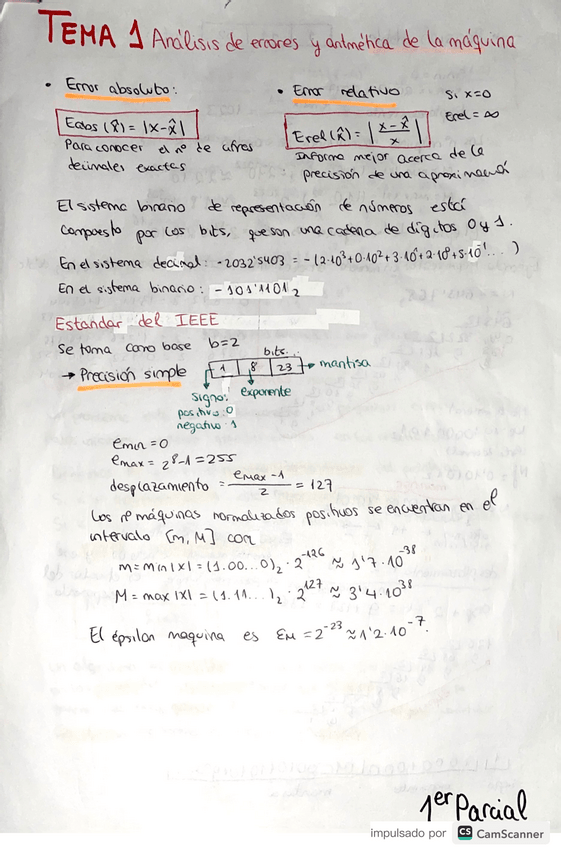 TEMA 1 Análisis de errores y aritmética de la máquina
• Error absoluto:
Eabs (x̂) = |x-x̂|
Para conocer el nº de cifras
decimales exactas
• Error relativo
Erel (x̂) = |x-x̂ / x|
Si x=0
Erel = ∞
Informa mejor acerca de la
precisión de una aproximación
El sistema binario de representación de números está
compuesto por los bits, que son una cadena de dígitos 0 y 1.
En el sistema decimal: -2032'5403 = -(2·10³+0·10²+3·10¹+2·10⁰+5·10⁻¹...)
En el sistema binario: -101'1101₂
Estandar del IEEE
Se toma como base b=2
bits
→ Precisión simple 1 8 23 → mantisa
signo: exponente
positivo: 0
negativo: 1
emin = 0
emax = 2⁸-1 = 255
desplazamiento = emax -1 / 2 = 127
Los nº máquinas normalizados positivos se encuentran en el
intervalo [m, M] con
m = min |x| = (1.00...0)₂ · 2⁻¹²⁶ ≈ 1'7·10⁻³⁸
M = max |x| = (1.11...)₂ · 2¹²⁷ ≈ 3'4·10³⁸
El épsilon maquina es εM = 2⁻²³ ≈ 1'2·10⁻⁷.
1er Parcial
impulsado por CS CamScanner